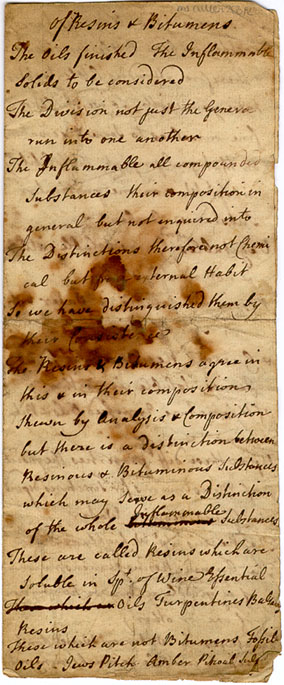 of Resins & Bitumens
The Oils finished The Inflammable
Solids to be considered
The Division not just the Genera
run into one another
The Inflammable all compounded
Substances their composition in
general but not enquired into
The Distinctions therefore not Chemi
cal but external Habit
So we have distinguished them by
their Consistence
The Resins & Bitumens agree in
this & in their composition
shewn by Analysis & Composition
but there is a distinction between
Resinous & Bituminous Substances
which may serve as a Distinction
of the whole Inflammable Substances
These are called Resins which are
Soluble in Spt. of Wine Essential
Oils Turpentines Balsams
Resins
These which are not Bitumens Fossile
Oils - Jews Pitch Amber Pitcoal Sulp